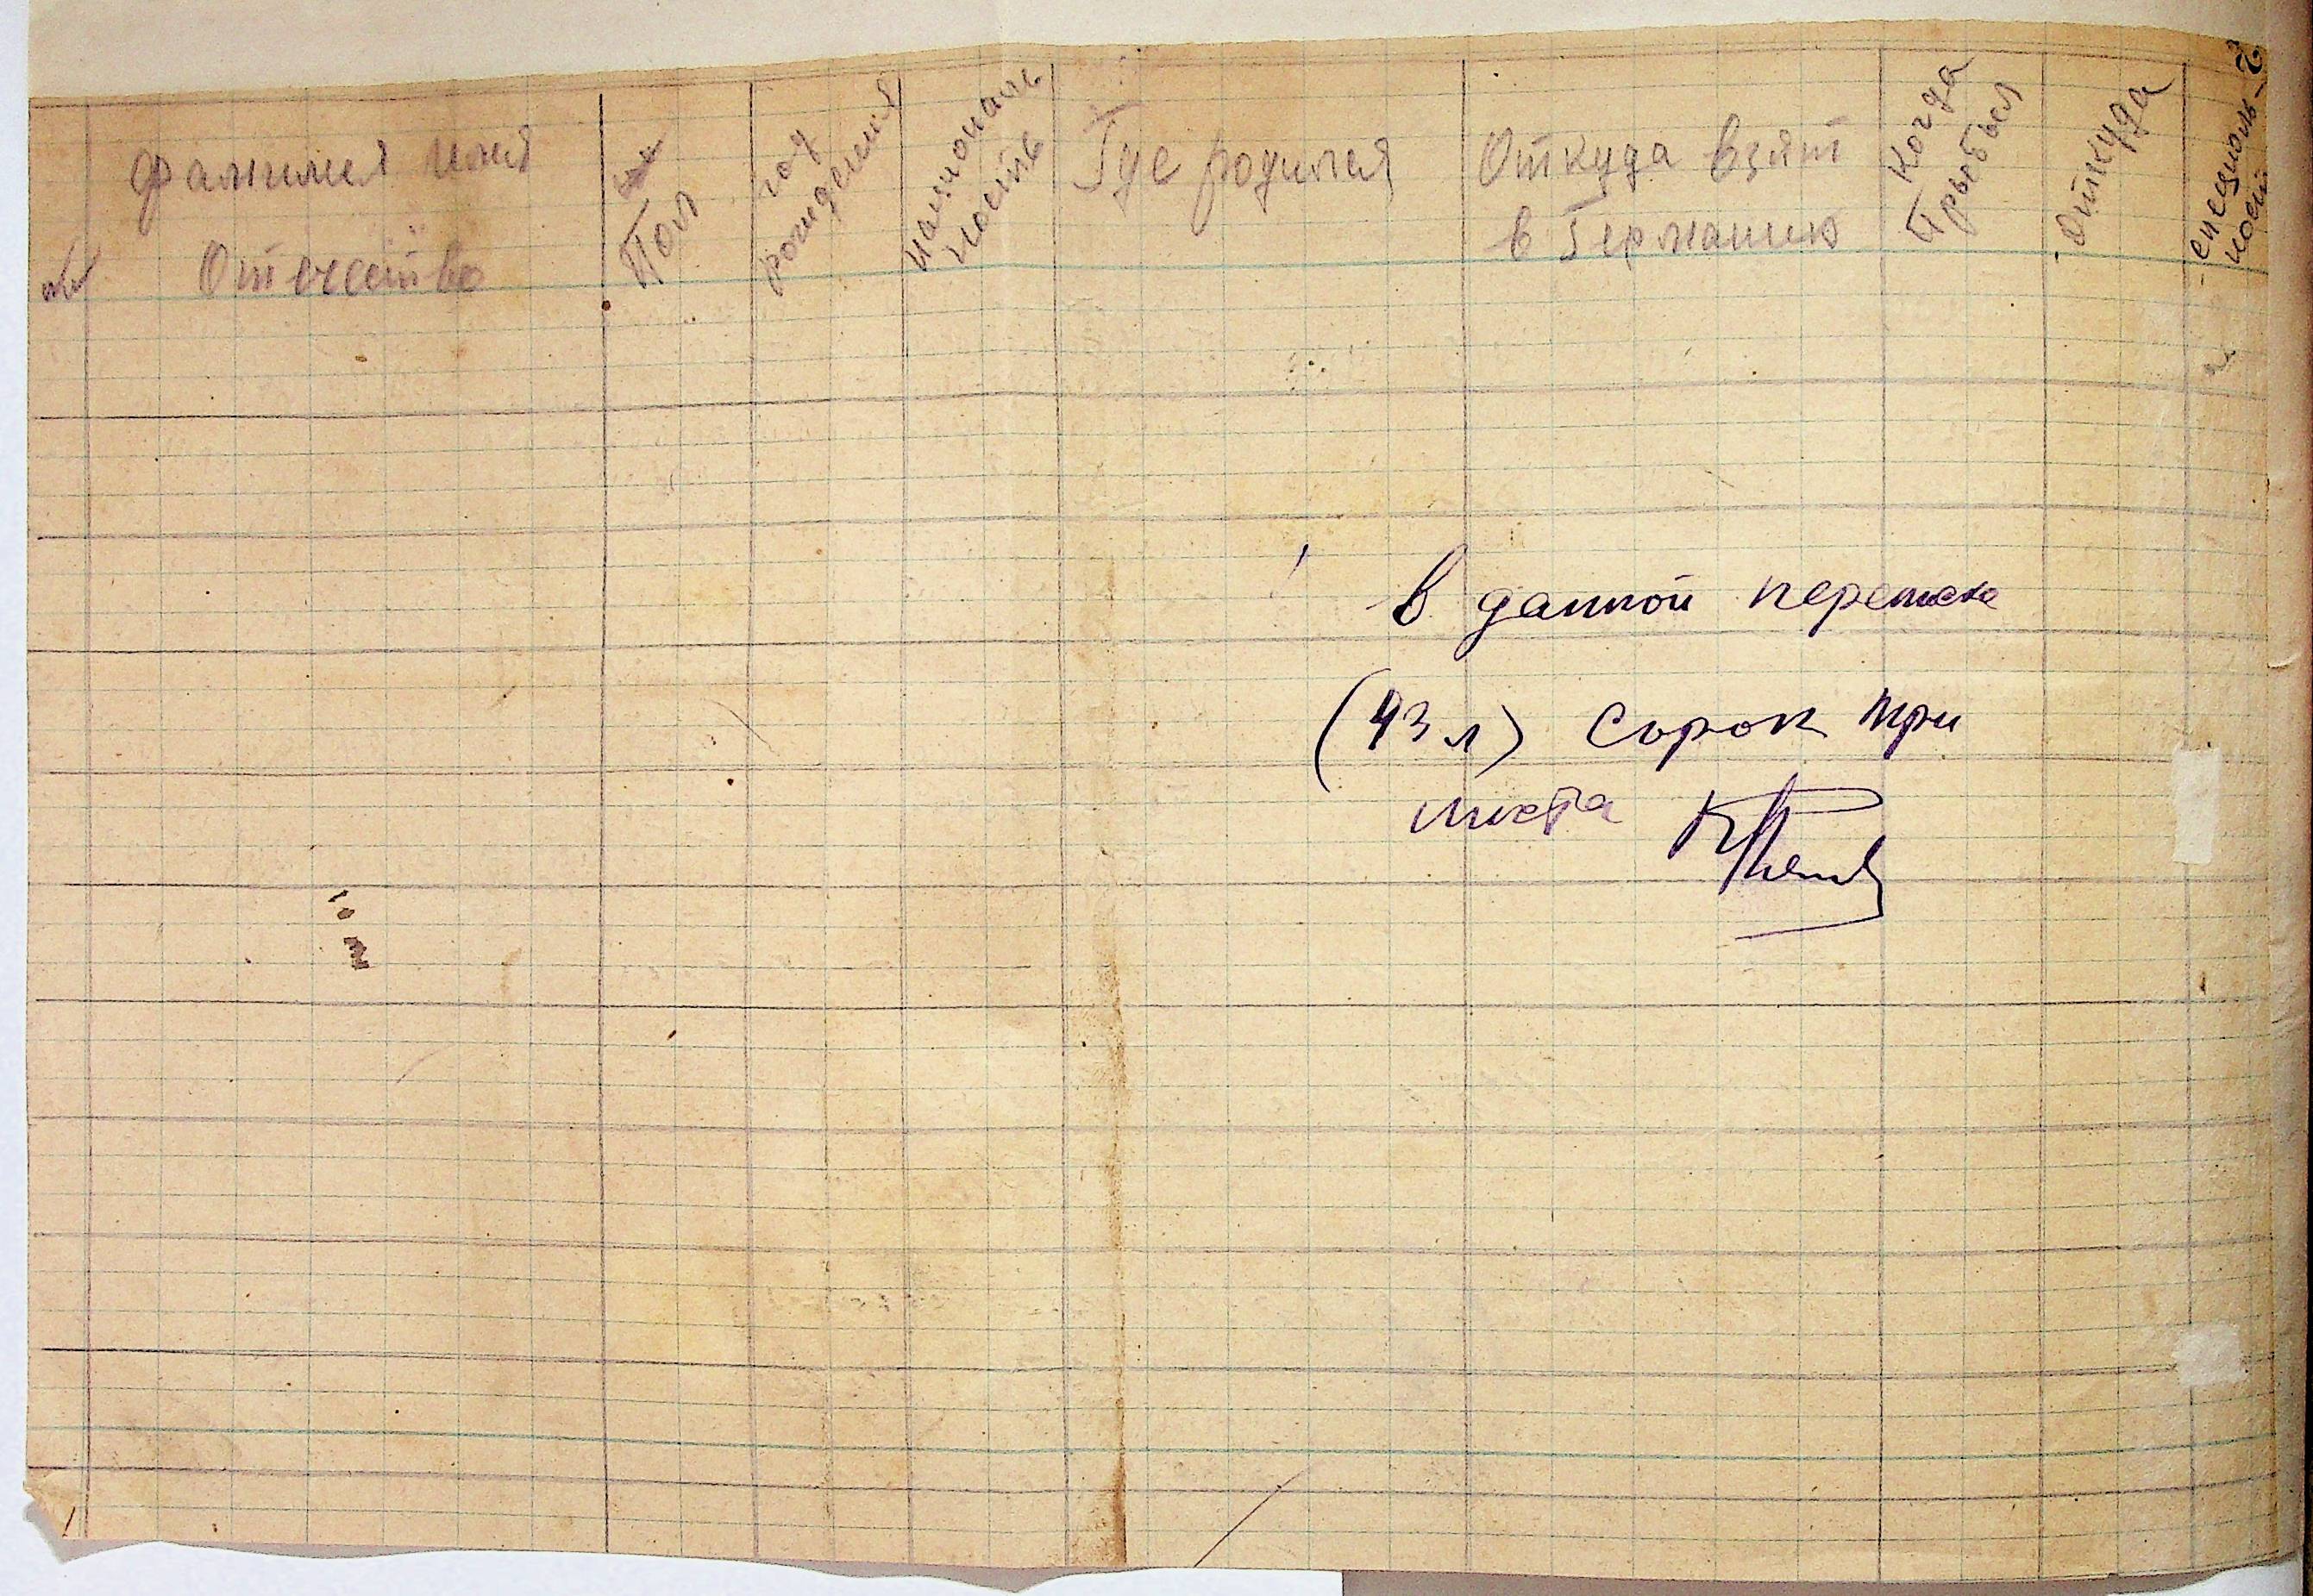 фамилия имя
Отечество
Пол
год
рождения
националь
ность
Где родился
Откуда взят
в Германию
Когда
Прыбыл
Откуда
специаль
ность
В данной
(43 л) Сорок три
листа